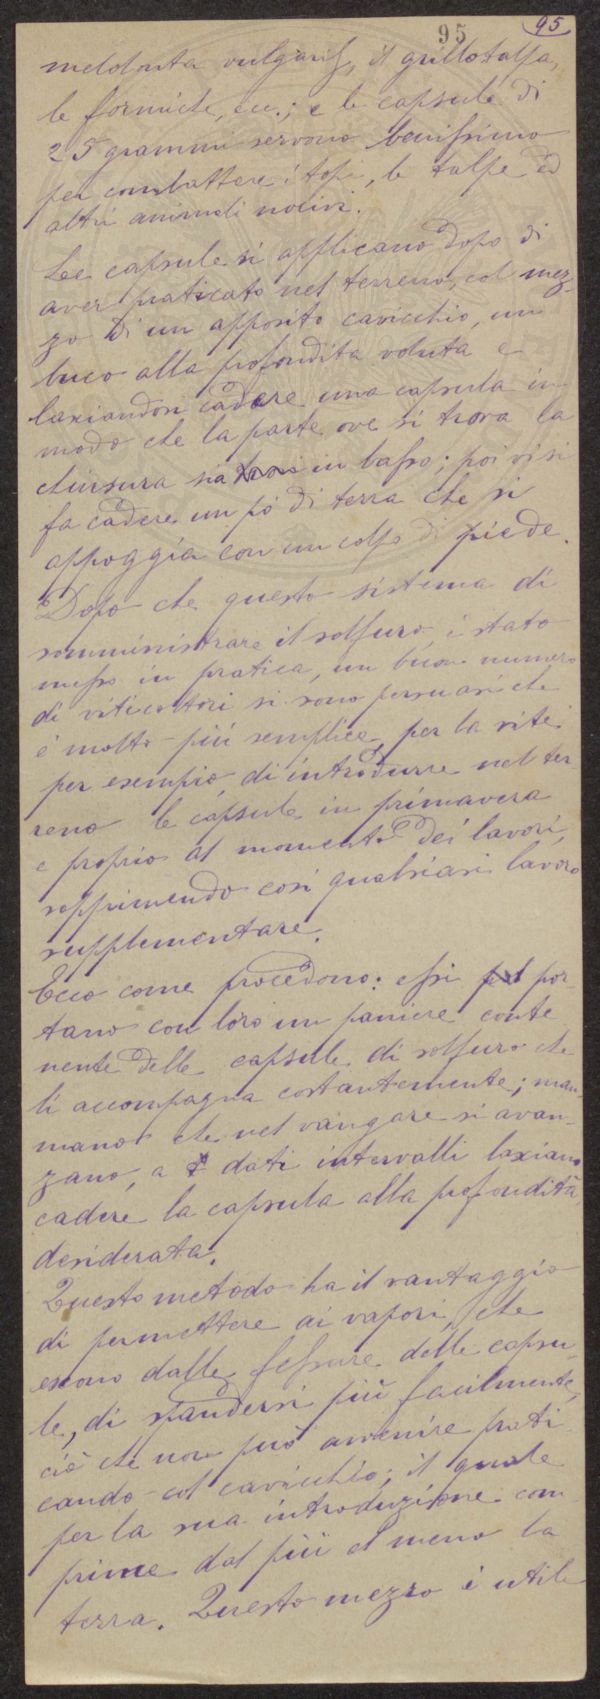 95 95
melolonta vulgaris, il grillotalpa,
le formiche, ecc.; e le capsule di
25 grammi servono benissimo
per combattere i topi, le talpe ed
altri animali nocivi.
Lee capsule si applicano dopo di
aver praticato nel terreno, col mez-
zo di un apposito cavicchio, un
buco alla profondità voluta e
lasciandosi cadere una capsula in
modo che la parte ove si trova la
chiusura sia in basso; poi vi si
fa cadere un pò di terra che si
appoggia con un colpo di piede.
Dopo che questo sistema di
somministrare il solfuro è stato
messo in pratica, un buon numero
di viticoltori si sono persuasi che
è molto più semplice, per la vite
per esempio, di introdurre nel ter
reno le capsule in primavera
e proprio al momento dei lavori,
sopprimendo così qualsiasi lavoro
supplementare.
Ecco come procedono: essi por-
tano con loro un paniere conte
nente delle capsule di solfuro che
li accompagna costantemente; man
mano che nel vangare si avan-
zano, a dati intervalli lasciano
cadere la capsula alla profondità
desiderata.
Questo metodo ha il vantaggio
di permettere ai vapori, che
escono dalle fessure delle capsu-
le, di spandersi più facilmente,
ciò che non può avvenire prati
cando col cavicchio; il quale
per la sua introduzione com
prime dal più al meno la
terra. Questo mezzo è utile